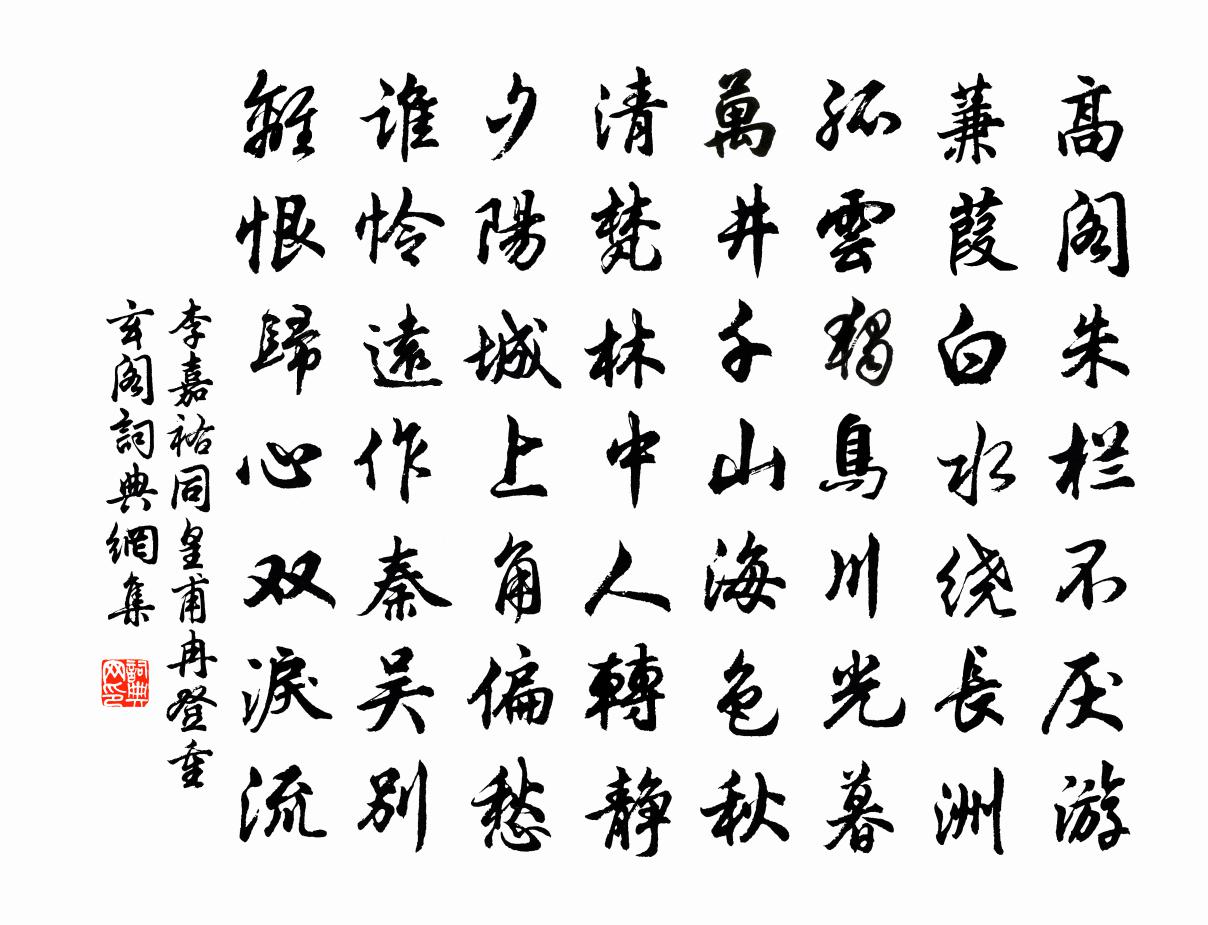 高阁朱栏不厌游
蒹葭白水绕長洲
孤雲獨鳥川光暮
萬井千山海色秋
清梵林中人轉静
夕陽城上角偏愁
谁怜遠作秦吴別
離恨歸心双淚流
李嘉祐同皇甫冉登重
玄阁詞典網集
詞典网印